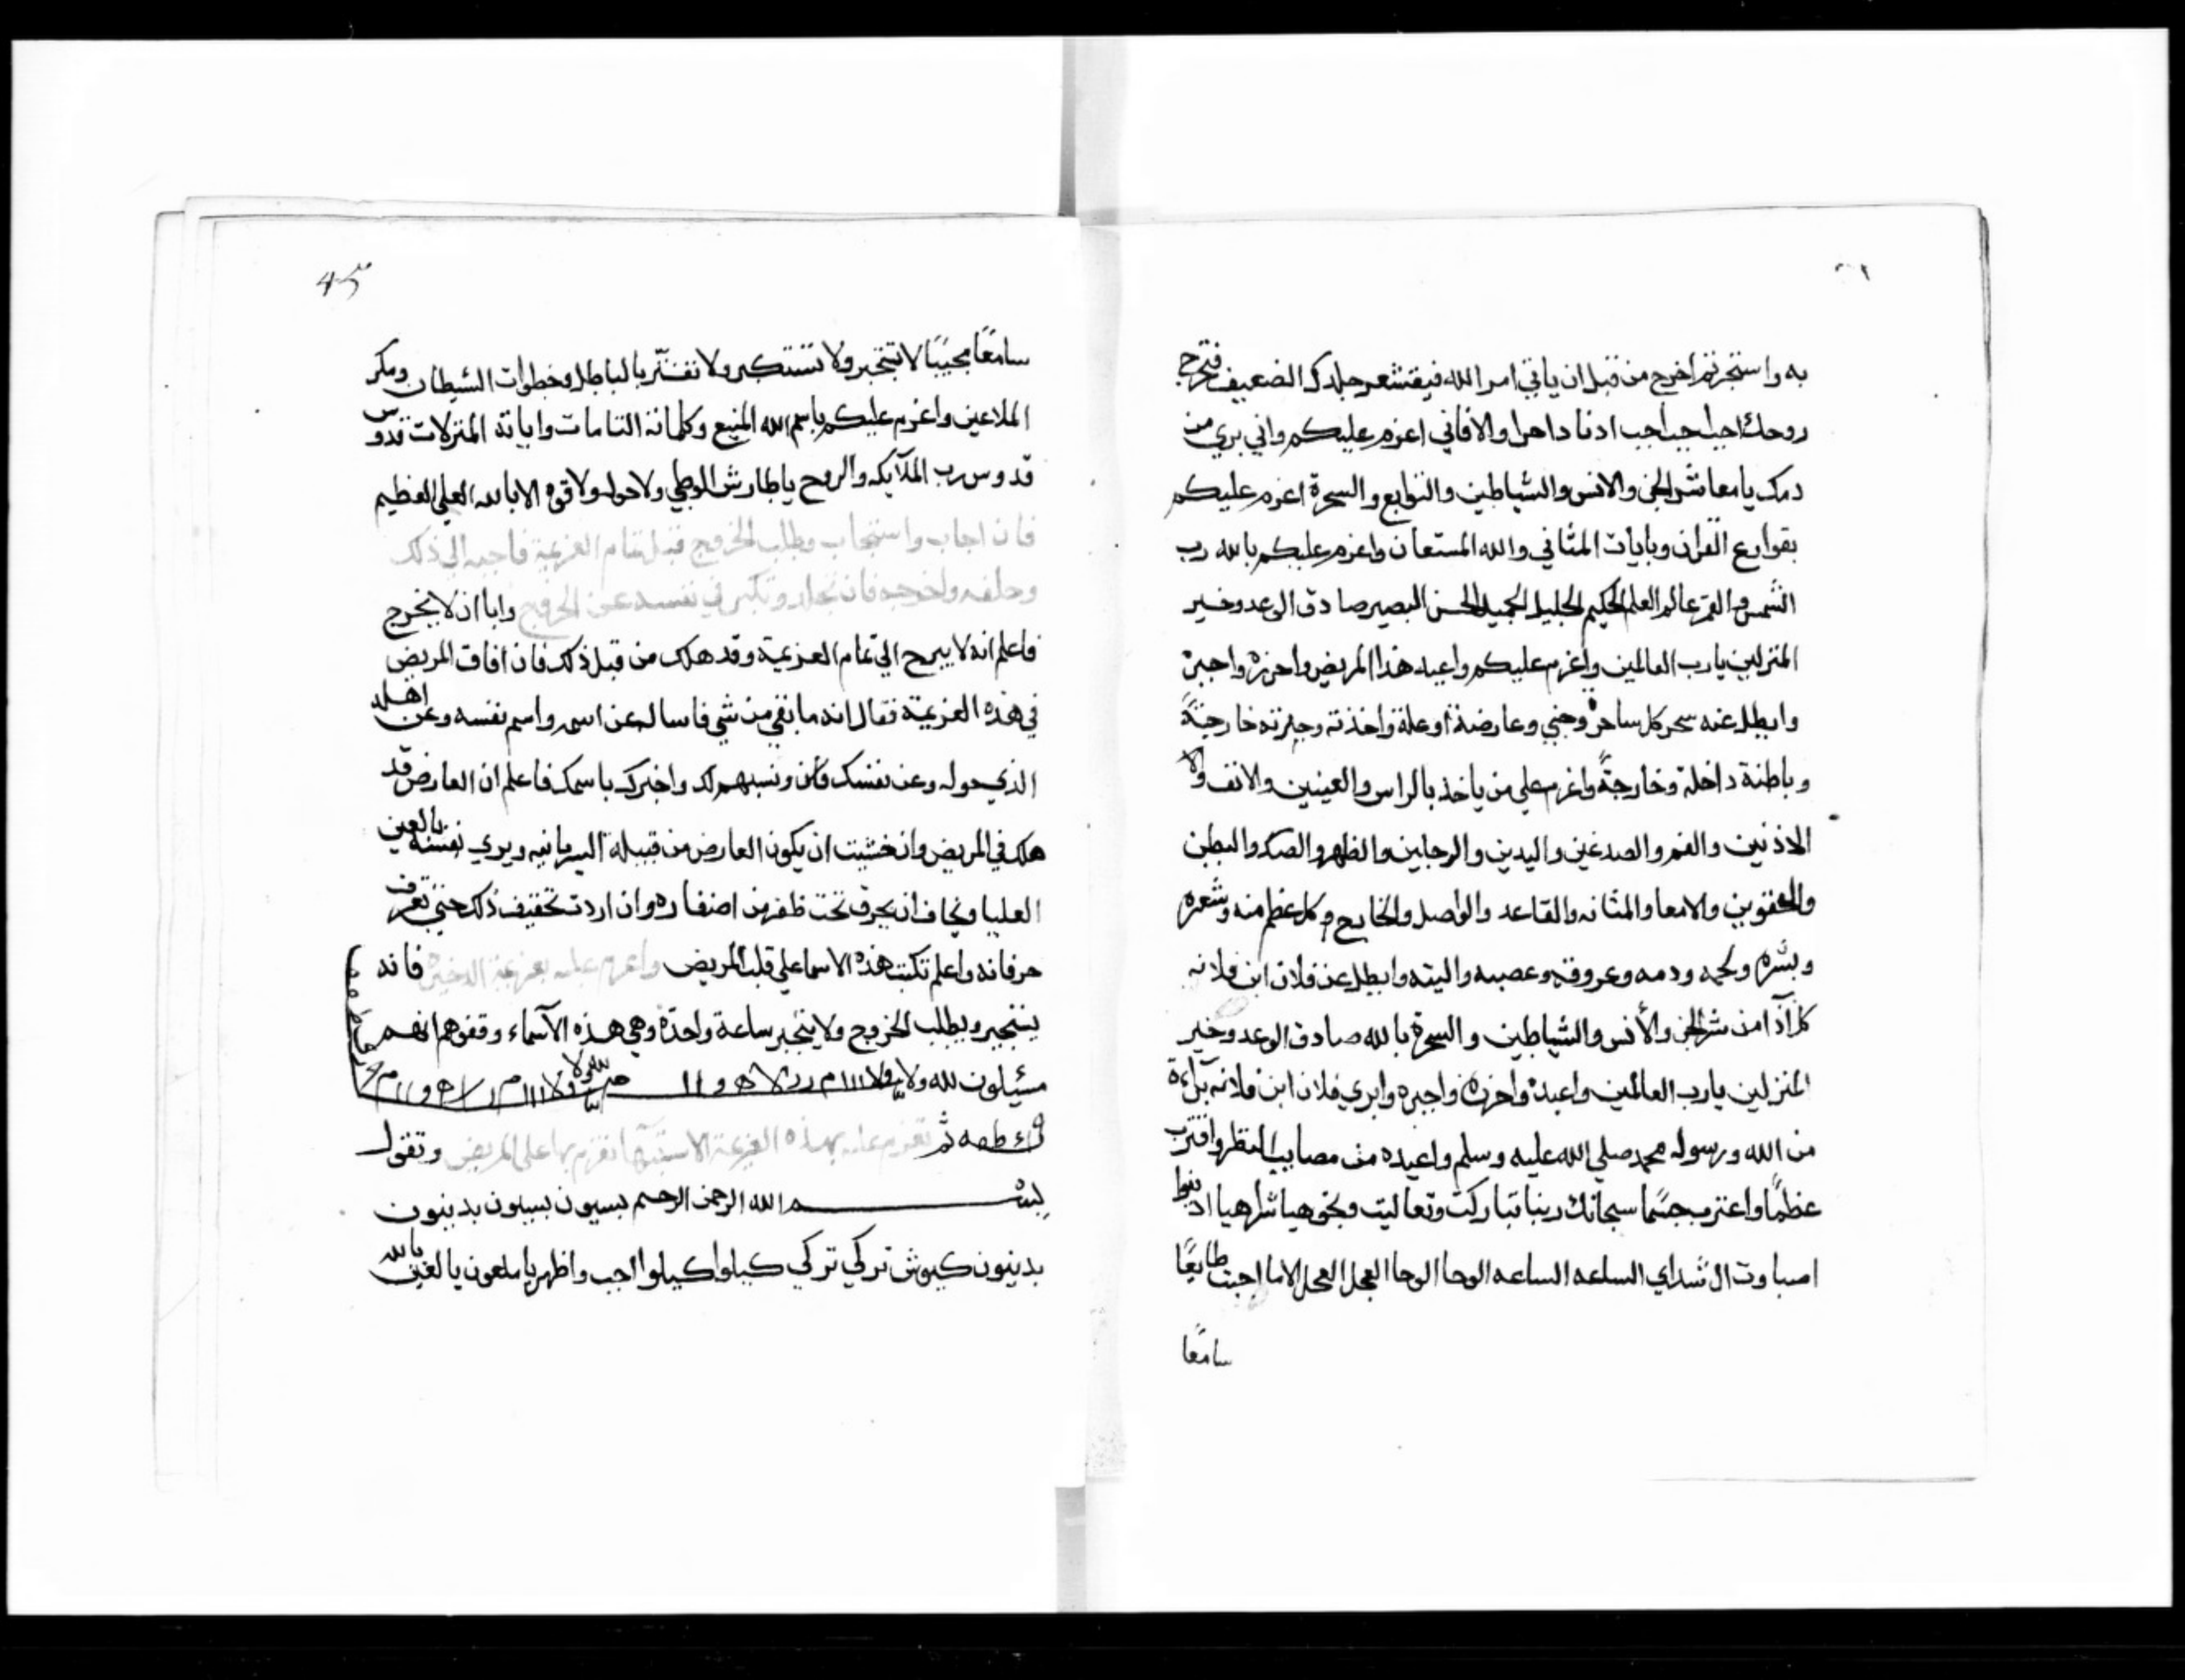 به واستجرتم اخرج من قبل ان ياتي امر الله فيقشعر جلدك الضعيف فتخرج
روحك اجب اجب اجب ادنا داحرا والافاني اعزم عليكم واني بري من
دمك يا معاشر الجن والانس والشياطين والتوابع والسحرة اعزم عليكم
بقوارع القران وبايات المثاني والله المستعان واعزم عليكم بالله رب
الشمس والقمر عالم العلم الحكيم الجليل الجميل الحسن البصير صادق الوعد وخير
المنزلين يا رب العالمين واعزم عليكم واعيد هذا المريض واحرزه واجيره
وابطل عنه سحر كل ساحر وجني وعارضة او علة واخذته وجيرته خارجيةً
وباطنة داخلة وخارجةً واعزم علي من ياخذ بالراس والعينين والانف ولا
الاذنين والفم والصدغين واليدين والرجلين والظهر والصدر والبطن
والحقوين والامعا والمثانه والقاعد والواصل والخارج وكل عظم منه وشعره
وبشره ولحمه ودمه وعروقه وعصبه واليته وابطل عن فلان ابن فلانه
كل آذا من شر الجن والأنس والشياطين والسحرة بالله صادق الوعد وخير
المنزلين يا رب العالمين واعيده واحرزه واجيره وابري فلان ابن فلانه برآءة
من الله ورسوله محمد صلي الله عليه وسلم واعيده من مصايب النظر واقترب
عظمًا واعترب جسمًا سبحانك ربنا تباركت وتعاليت وبحق هيا شراهيا ادنوا
اصباوت ال شداي الساعه الساعه الوحا الوحا العجل العجل الاما اجبت طايعًا
سامعًا
45
سامعًا مجيبًا لا تتجبر ولا تستكبر ولا تغتر بالباطل وخطوات الشيطان ومكر
الملاعين واعزم عليكم باسم الله المنيع وكلماته التامات واياته المنزلات قدوس
قدوس رب الملآيكه والروح يا طارش الوطي ولا حول ولا قوه الا بالله العلي العظيم
فان اجاب واستجاب وطلب الخروج قبل تمام العزيمة فاجبه الي ذلك
وحلفه واخرجه فان تجلد وتكبر في نفسه عن الخروج وابا ان لا يخرج
فاعلم انه لا يبرح الي تمام العزيمة وقد هلك من قبل ذلك فان افاق المريض
في هذه العزيمة فقال انه ما بقي من شي فاساله عن اسمه واسم نفسه وعن اهله
الذي حوله وعن نفسك فان ونسبهم لك واخبرك باسمك فاعلم ان العارض قد
هلك في المريض وان خشيت ان يكون العارض من قبيلة السريانيه ويري نفسه بالعين
العليا وتخاف ان يحرق تحت ظفر من اضفاره وان اردت تخفيف ذلك حتي تعرف
حرفانه واعلم تكتب هذه الاسما علي قلب المريض واعزم عليه بعزيمة الدخيره فانه
يستجير ويطلب الخروج ولا يتجبر ساعة واحدة وهي هذه الآسماء وقفوهم انهم
مسئلون لله ولا
ثم تعزم عليه بهذه العزيمة تعزم بها علي المريض وتقول
بسم الله الرحمن الرحيم بسيون بسبون بدينون
بدينون كيوش تركي تركي كيلوا كيلوا اجب واظهر يا ملعون يا لعين بالله